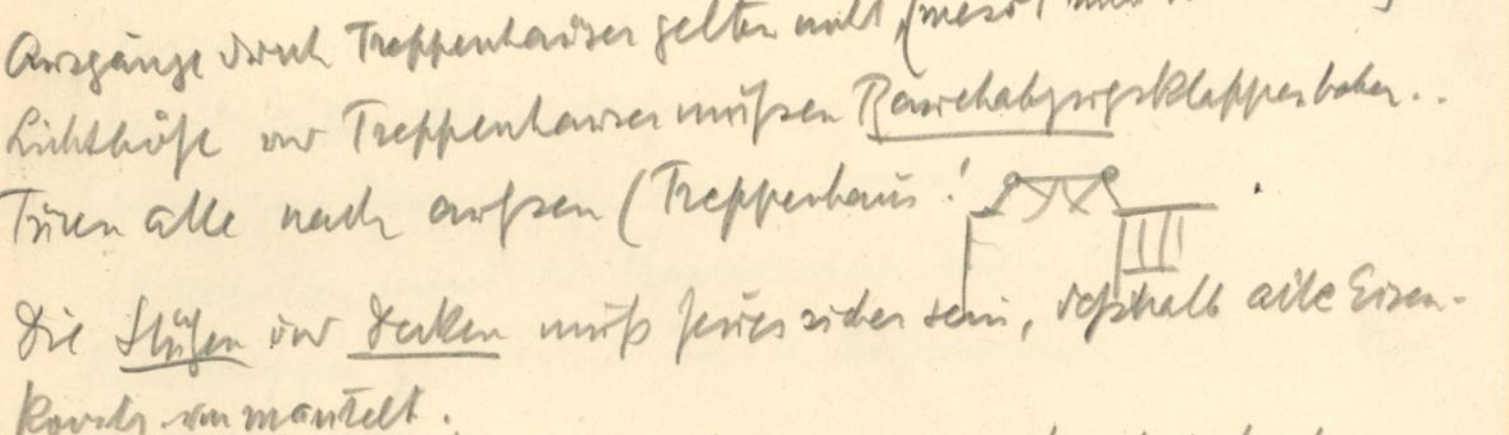 Ausgänge durch Treppenhäuser gelten nicht
Lichthöfe und Treppenhäuser müßen Rauchabzugsklappen haben..
Türen alle nach außen (Treppenhaus!
Die Stützen und Decken muß feuersicher sein, deßhalb alle Eisen-
konstr. ummantelt.